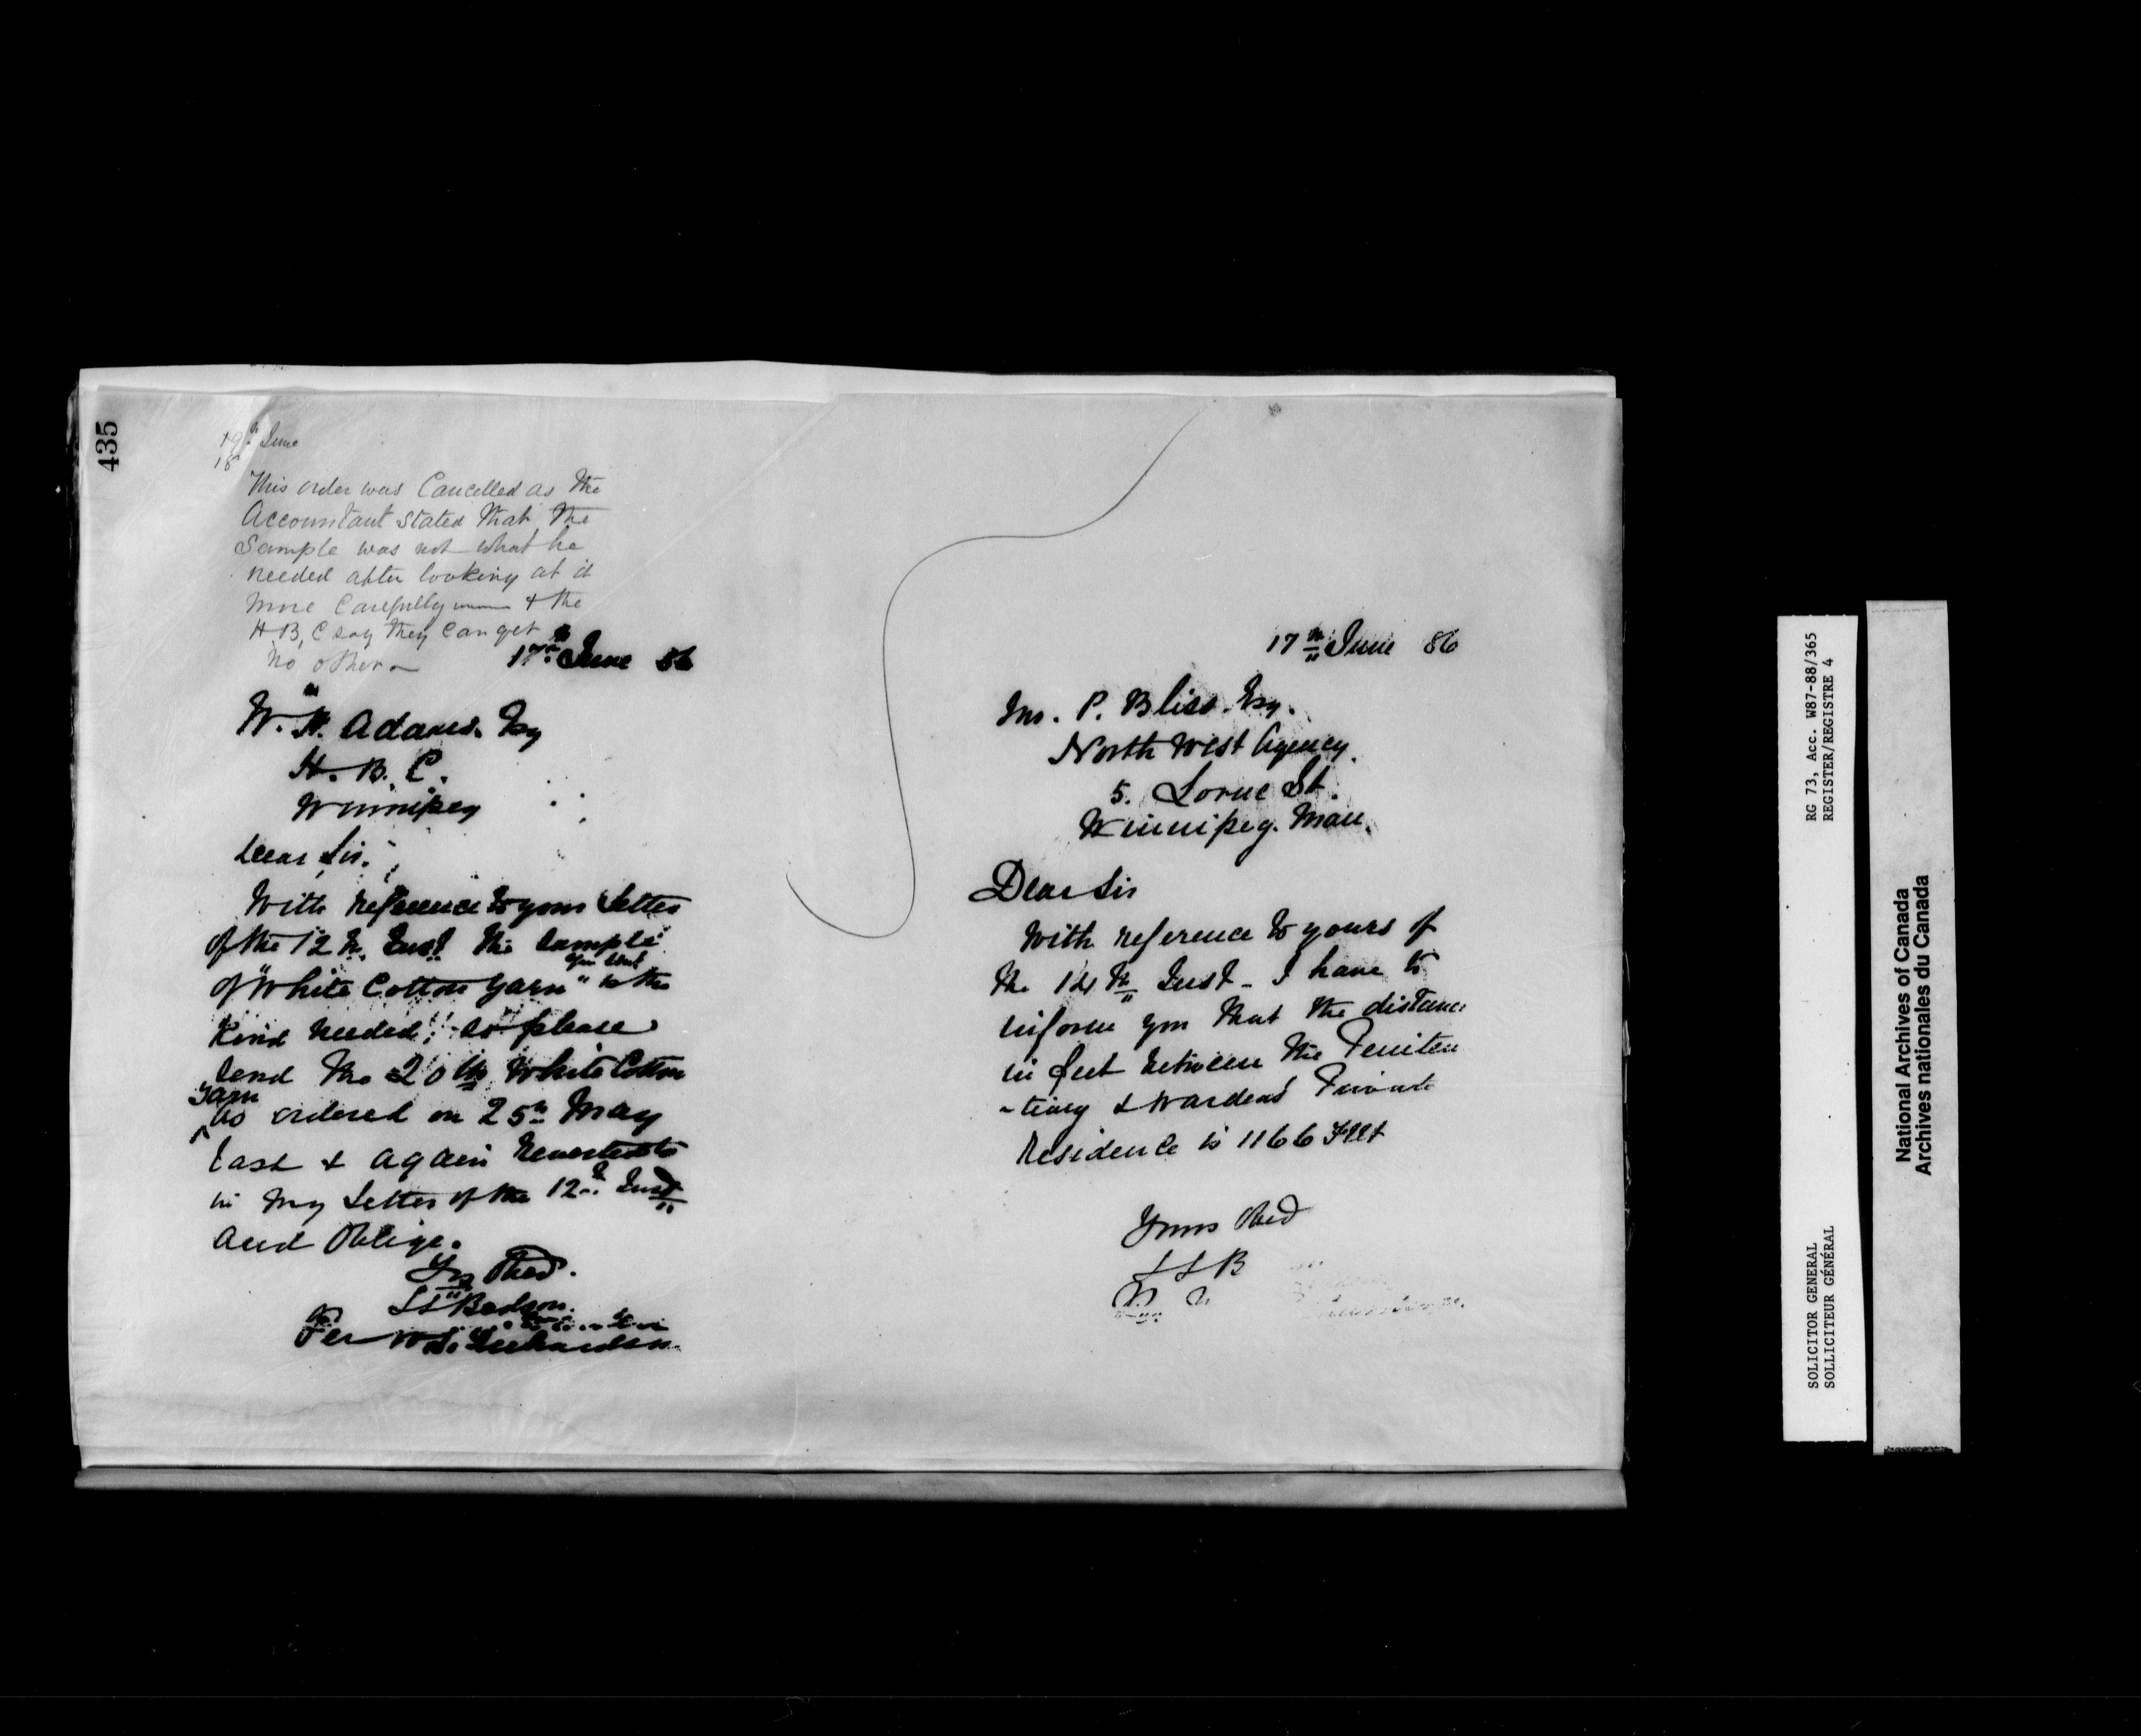 435
19th June
18
This order was Cancelled as the
Accountant stated that the
Sample was not what he
needed after looking at it
more Carefully & the
H.B.C say they can get
no other
17th June 86
W. H. Adams. Esq
H. B. C.
Winnipeg
Dear Sir.
With reference to your Letter
of the 12th Inst the sample
you sent
of "White Cotton Yarn" is the
Kind needed, so please
Send the 20 lb White Cotton
Yarn
as ordered on 25th May
last & again
in my Letter of the 12th Inst
and Oblige.
Yrs Obed.
S L Bedson.
Per W. S.
17th June 86
Jno. P. Bliss. Esq.
North West Agency.
5. Lorne St.
Winnipeg. Man.
Dear Sir
With reference to yours of
the 14th Inst - I have to
inform you that the distance
in feet between the Peniten
-tiary & Wardens Private
Residence is 1166 Feet
Yours Obed
S L B
RG 73, Acc. W87-88/365
REGISTER/REGISTRE 4
SOLICITOR GENERAL
SOLLICITEUR GÉNÉRAL
National Archives of Canada
Archives nationales du Canada